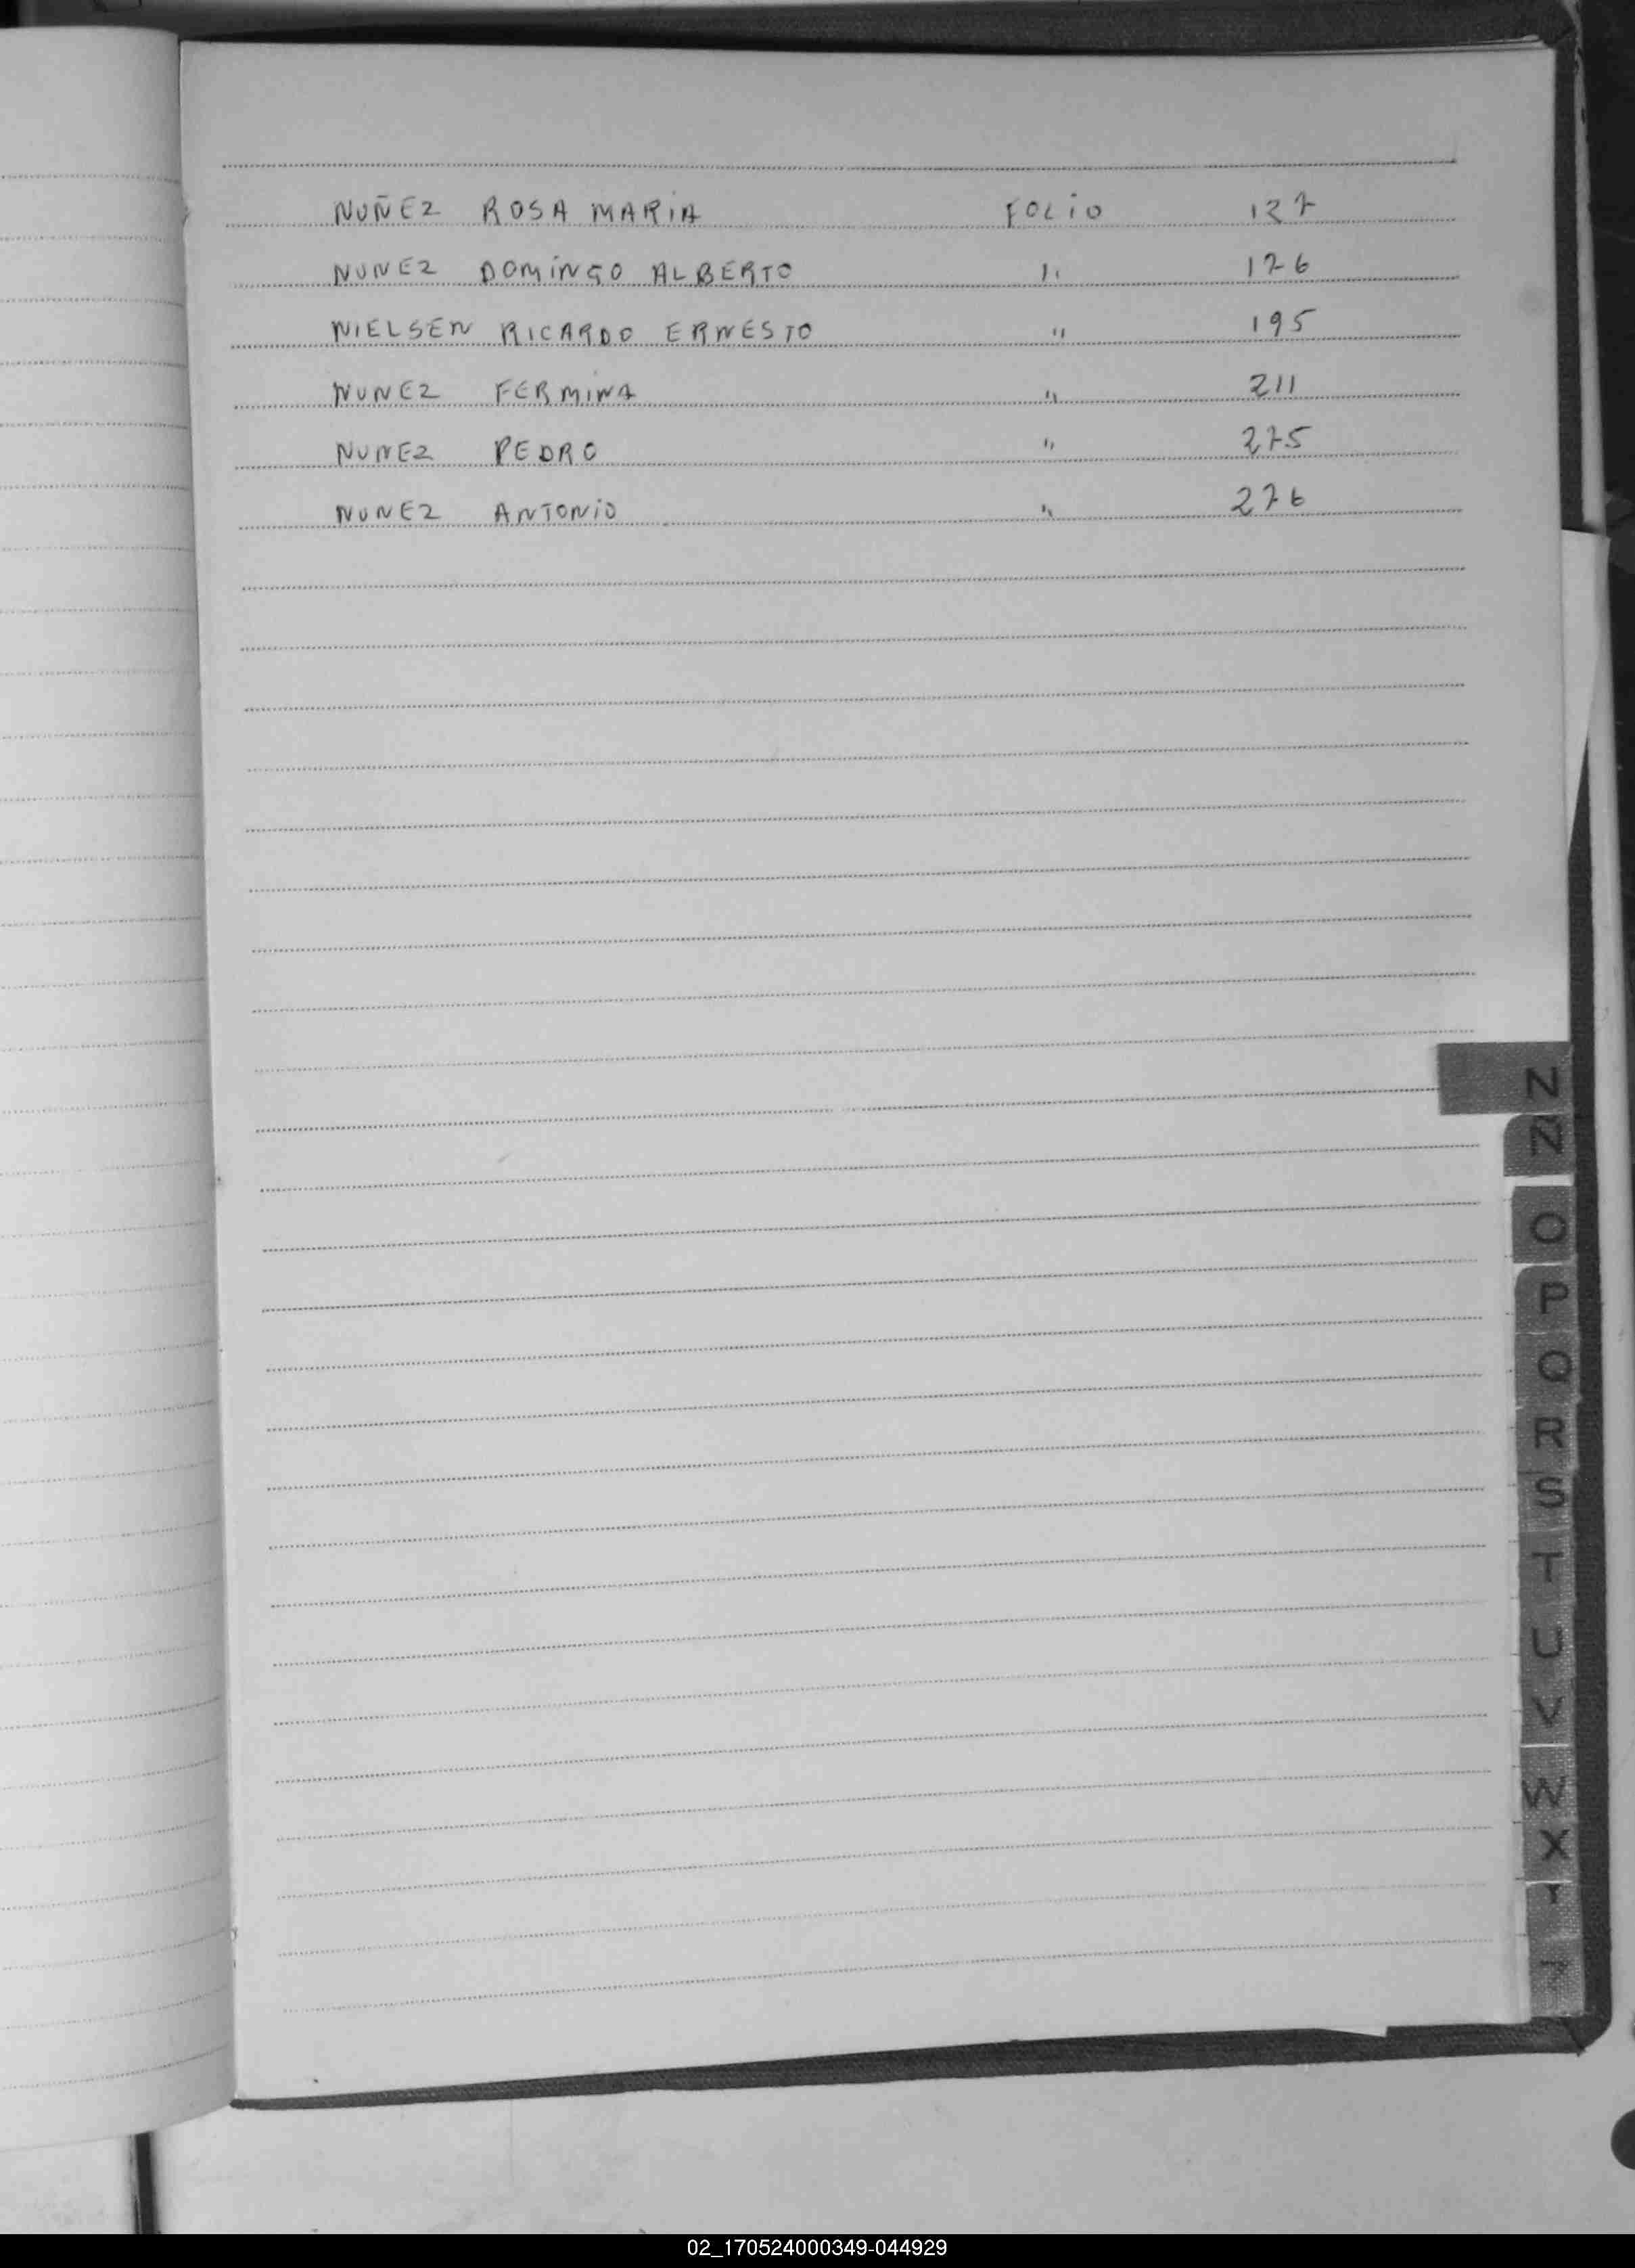 NUÑEZ ROSA MARIA FOLIO 127
NUNEZ DOMINGO ALBERTO " 176
NIELSEN RICARDO ERNESTO " 195
NUNEZ FERMINA " 211
NUNEZ PEDRO " 275
NUNEZ ANTONIO " 276
N
Ñ
O
P
Q
R
S
T
U
V
W
X
Y
02_170524000349-044929